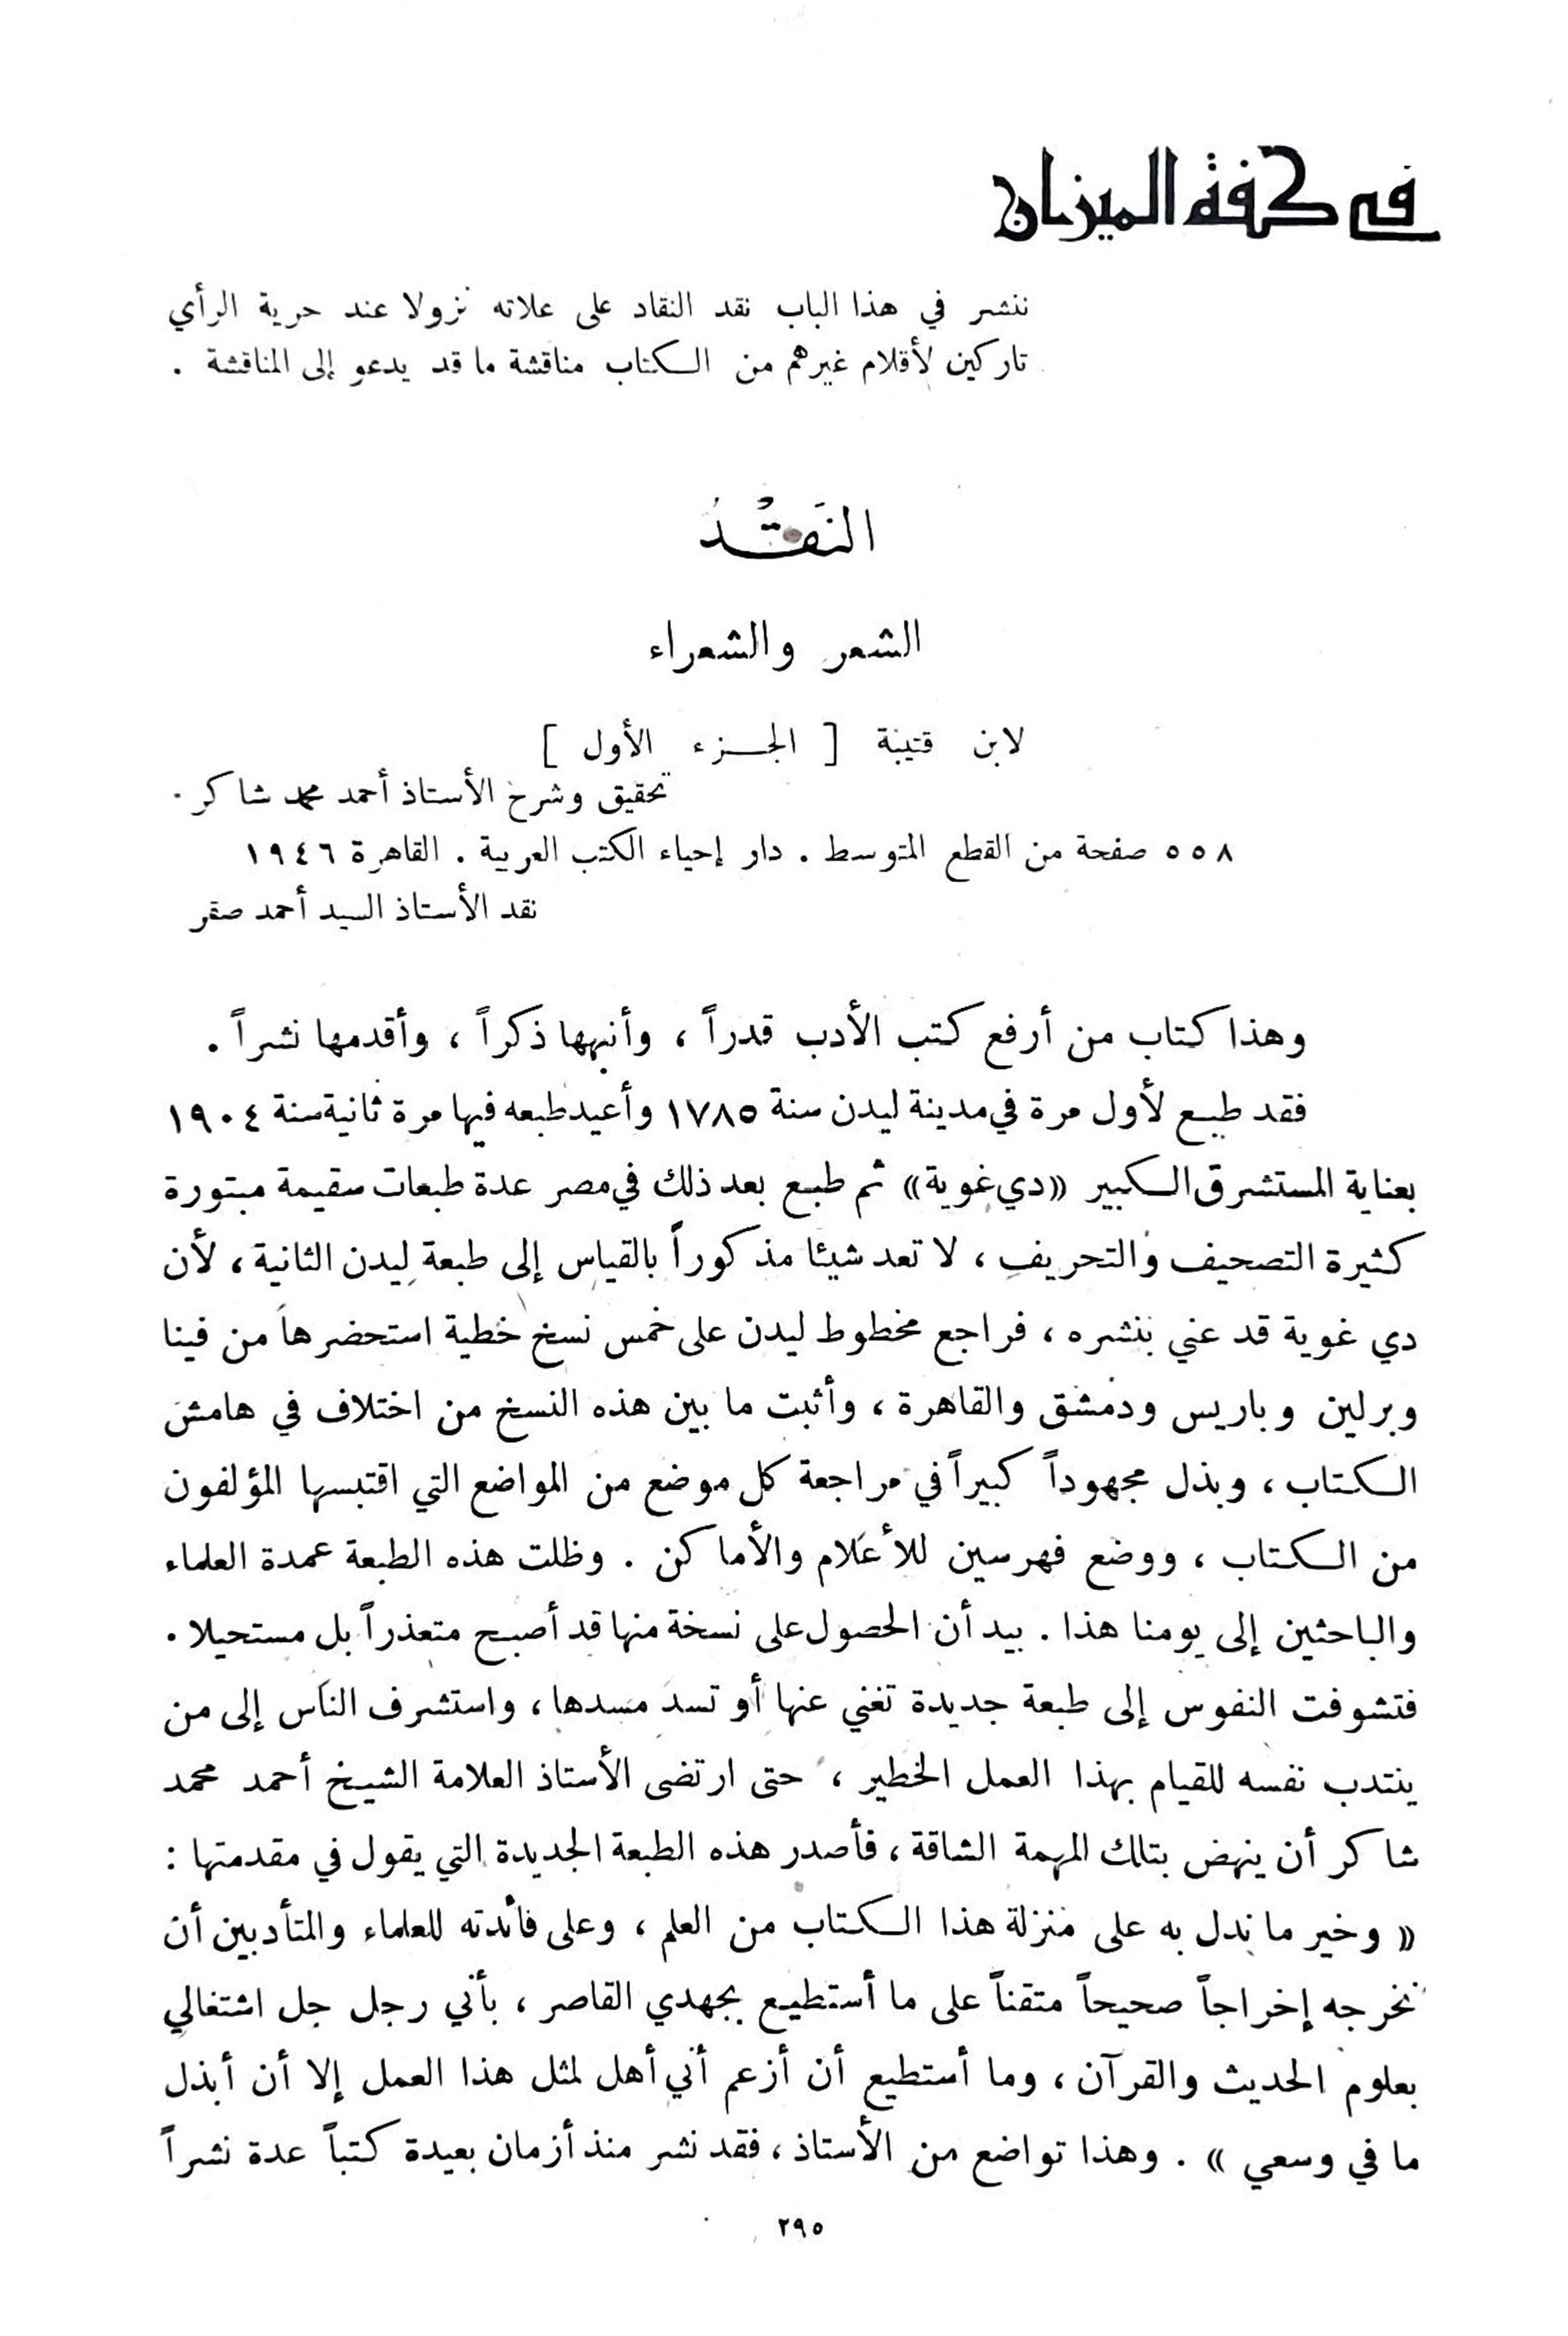 في كفة الميزان
ننشر في هذا الباب نقد النقاد على علاته نزولا عند حرية الرأي
تاركين لأقلام غيرهم من الكتاب مناقشة ما قد يدعو إلى المناقشة .
النَقْدُ
الشعر والشعراء
لابن قتيبة [ الجزء الأول ]
تحقيق وشرح الأستاذ أحمد محمد شاكر .
٥٥٨ صفحة من القطع المتوسط . دار إحياء الكتب العربية . القاهرة ١٩٤٦
نقد الأستاذ السيد أحمد صقر
وهذا كتاب من أرفع كتب الأدب قدراً ، وأنبهها ذكراً ، وأقدمها نشراً .
فقد طبع لأول مرة في مدينة ليدن سنة ١٧٨٥ وأعيد طبعه فيها مرة ثانية سنة ١٩٠٤
بعناية المستشرق الكبير «دي غوية» ثم طبع بعد ذلك في مصر عدة طبعات سقيمة مبتورة
كثيرة التصحيف والتحريف ، لا تعد شيئا مذكوراً بالقياس إلى طبعة ليدن الثانية ، لأن
دي غوية قد عني بنشره ، فراجع مخطوط ليدن على خمس نسخ خطية استحضرها من فينا
وبرلين وباريس ودمشق والقاهرة ، وأثبت ما بين هذه النسخ من اختلاف في هامش
الكتاب ، وبذل مجهوداً كبيراً في مراجعة كل موضع من المواضع التي اقتبسها المؤلفون
من الكتاب ، ووضع فهرسين للأعلام والأماكن . وظلت هذه الطبعة عمدة العلماء
والباحثين إلى يومنا هذا . بيد أن الحصول على نسخة منها قد أصبح متعذراً بل مستحيلا .
فتشوفت النفوس إلى طبعة جديدة تغني عنها أو تسد مسدها ، واستشرف الناس إلى من
ينتدب نفسه للقيام بهذا العمل الخطير ، حتى ارتضى الأستاذ العلامة الشيخ أحمد محمد
شاكر أن ينهض بتلك المهمة الشاقة ، فأصدر هذه الطبعة الجديدة التي يقول في مقدمتها :
« وخير ما ندل به على منزلة هذا الكتاب من العلم ، وعلى فائدته للعلماء والمتأدبين أن
نخرجه إخراجاً صحيحاً متقناً على ما أستطيع بجهدي القاصر ، بأني رجل جل اشتغالي
بعلوم الحديث والقرآن ، وما أستطيع أن أزعم أني أهل لمثل هذا العمل إلا أن أبذل
ما في وسعي » . وهذا تواضع من الأستاذ ، فقد نشر منذ أزمان بعيدة كتباً عدة نشراً
٢٩٥